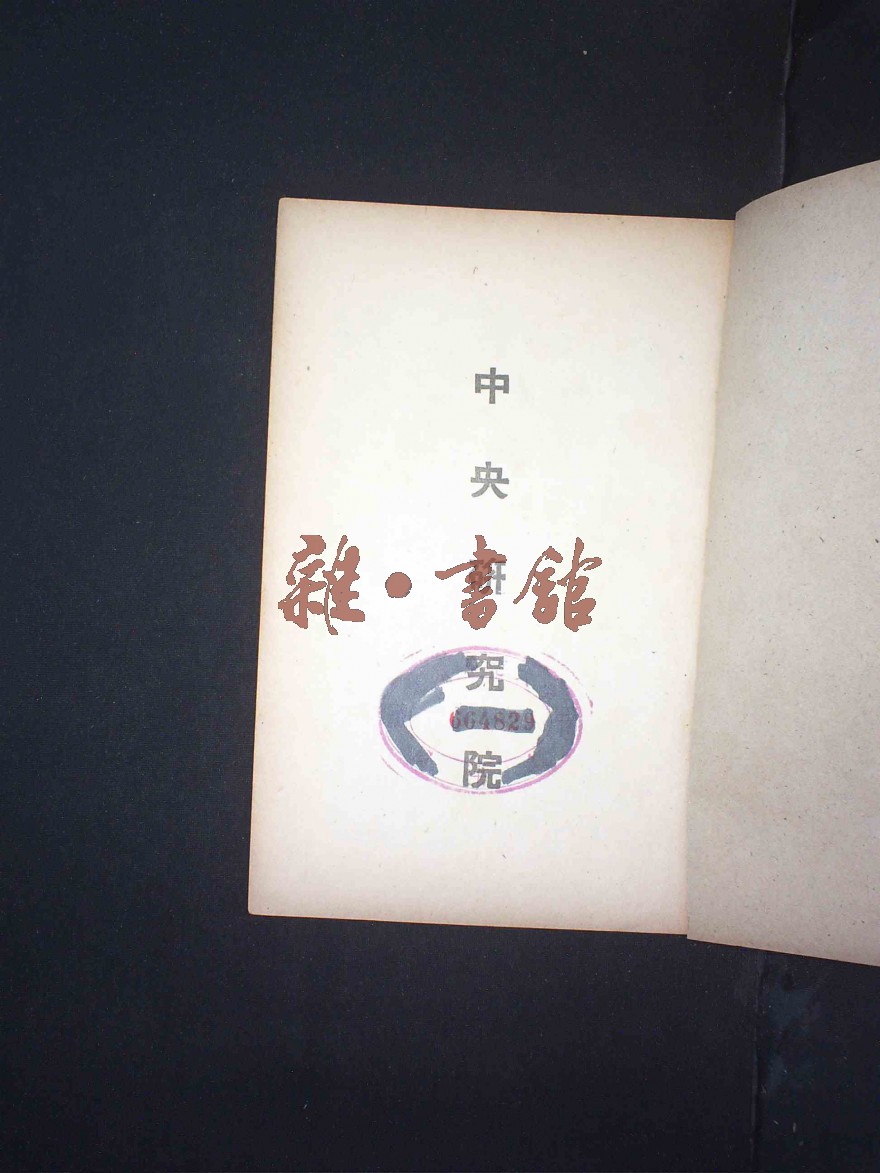 中央研究院
雜·書館
664829